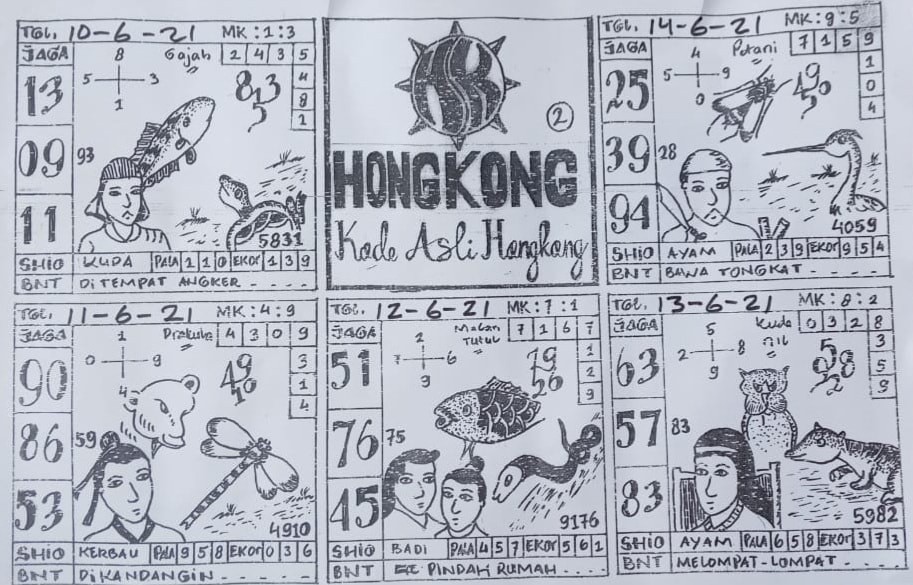 TGL. 10-6-21 MK:1:3
JAGA 8 Gajah 2 4 3 5
13 5 3 8,3 4
1 5 8
1
09 93
11
5831
SHIO KUDA PALA 1 1 0 EKOR 1 3 9
BNT DITEMPAT ANGKER - - - -
②
HONGKONG
Kode Asli Hongkong
TGL. 14-6-21 MK:9:5
JAGA 4 Petani 7 1 5 9
25 5 9 49 1
0 5 0
4
39 28
94
4059
SHIO AYAM PALA 2 3 9 EKOR 9 5 4
BNT BAWA TONGKAT - - - -
TGL. 11-6-21 MK:4:9
JAGA 1 Drakula 4 3 0 9
90 0 9 49 3
4 10 1
4
86 59
53
4910
SHIO KERBAU PALA 9 5 8 EKOR 0 3 6
BNT DIKANDANGIN - - - -
TGL. 12-6-21 MK:7:1
JAGA 2 Macan Tutul 7 1 6 7
51 7 6 79 1
9 56 2
9
76 75
45
9176
SHIO BADI PALA 4 5 7 EKOR 5 6 1
BNT PINDAH RUMAH - - - -
TGL. 13-6-21 MK:8:2
JAGA 5 Kuda Nil 0 3 2 8
63 2 8 58 3
9 2 5
9
57 83
83
5982
SHIO AYAM PALA 6 5 8 EKOR 3 7 3
BNT MELOMPAT-LOMPAT - - - -